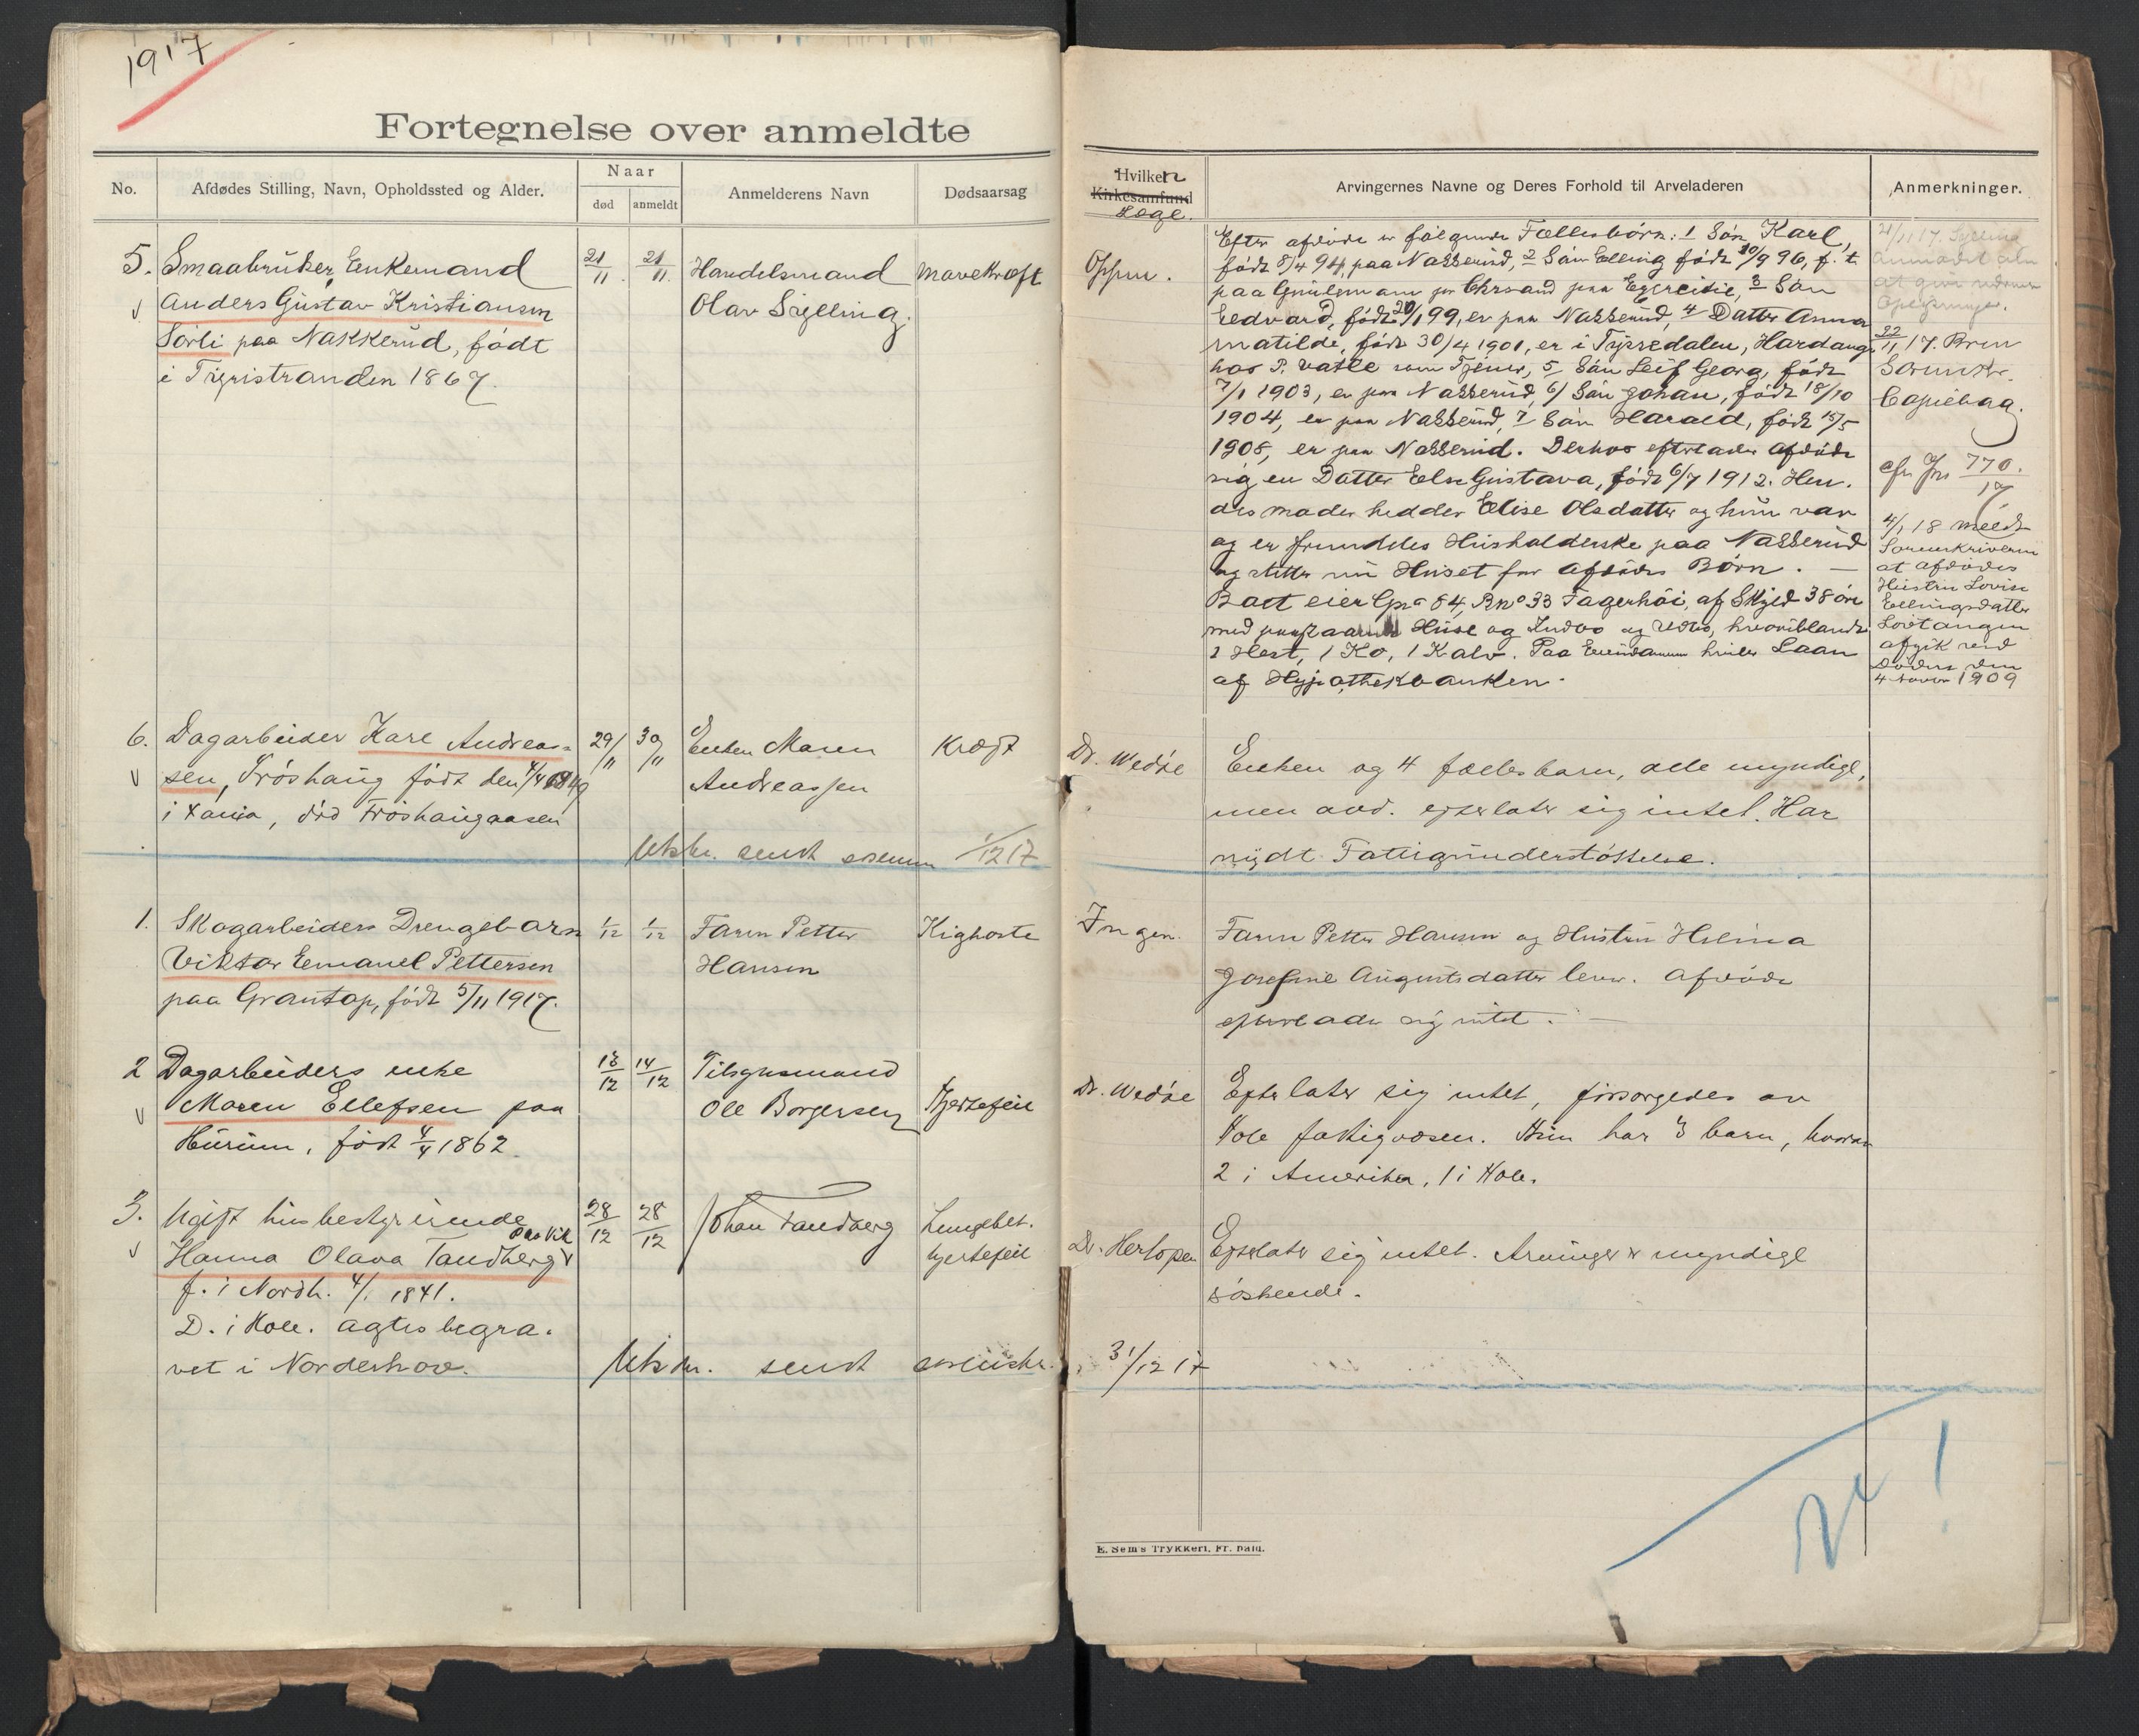 1917
Fortegnelse over anmeldte
No.
Afdødes Stilling, Navn, Opholdssted og Alder.
Naar
død
anmeldt
Anmelderens Navn
Dødsaarsag
Hvilken
Kirkesamfund
Læge.
Arvingernes Navne og Deres Forhold til Arveladeren
Anmerkninger.
5. Smaabruker, Enkemand
Anders Gustav Kristiansen
Sörli paa Nakkerud, født
i Tyristranden 1867.
21/11
21/11
Handelsmand
Olav Sylling.
Mavekræft
Oppen.
Efter afdøde er følgende Fællesbørn: 1 Søn Karl,
født 8/4 94, paa Nakkerud, 2 Søn Elling født 10/9 96, f. t.
paa Chrsand paa Egercitie, 3 Søn
Edvard, født 20/1 99, er paa Nakkerud, 4 Datter Anna
Matilde, født 30/4 1901, er i Tyssedalen, Hardang
hos P. Vatle som Tjener, 5 Søn Leif Georg, født
7/1 1903, er paa Nakkerud, 6/ Søn Johan, født 18/10
1904, er paa Nakkerud, 7 Søn Harald, født 15/5
1908, er paa Nakkerud. Derhos efterlader afdøde
sig en Datter Else Gustava, født 6/7 1912. Hen-
des moder hedder Elise Olsdatter og hun var
og er fremdeles Husholderske paa Nakkerud
og stetter nu Huset for afdødes Børn. —
Boet eier Gno 84, Bno 33 Fagerhøi, af Skyld 38 øre
med paastaaende Huse og Indbo og Udbo, hvoriblandt
1 Hest, 1 Ko, 1 Kalv. Paa Eiendommen hviler Laan
af Hypothekbanken.
21/11 17.
22/11 17. Brev
Sorenskr.
Copiebog.
cfr Jno 770/17
4/1 18 meldt
Sorenskriveren
at afdødes
Hustru Lovise
Ellingsdatter
afgik ved
Døden den
4 1909
6. Dagarbeider Karl Andreas-
sen, Frøshaug født den 4/4 1849
i Xania, død Frøshaugaasen
29/11
30/11
Enken Maren
Andreassen
Kræft
Dr. Wedøe
Enken og 4 fællesbarn, alle myndige,
men avd. efterlater sig intet. Har
nydt Fattigunderstøttelse.
Utskr. sendt sorenskr 1/12 17
1. Skogarbeiders Drengebarn
Viktor Emanuel Pettersen
paa Grantop, født 5/11 1917.
1/12
1/12
Faren Petter
Hansen
Kighoste
Ingen.
Faren Petter Hansen og Hustru Helma
Josefine Augustsdatter lever. Afdøde
efterlader sig intet. —
2 Dagarbeiders enke
Maren Ellefsen paa
Hurum, født 4/4 1862.
13/12
14/12
Tilsynsmand
Ole Borgersen
Hjertefeil
Dr. Wedøe
Efterlater sig intet, forsørgedes av
Hole fattigvæsen. Hun har 3 barn, hvorav
2 i Amerika, 1 i Hole.
3. Ugift husbestyrerinde
Hanna Olava Tandberg
f. i Nordh. 4/1 1841.
D. i Hole. agtes begra-
vet i Norderhov.
28/12
28/12
Johan Tandberg
Lungebet.
hjertefeil
Dr. Hertopen
Efterlater sig intet. Arvinger er myndige
søskende.
Utskr. sendt sorenskr. 31/12 17
E. Sem's Trykkeri, Fr. hald.